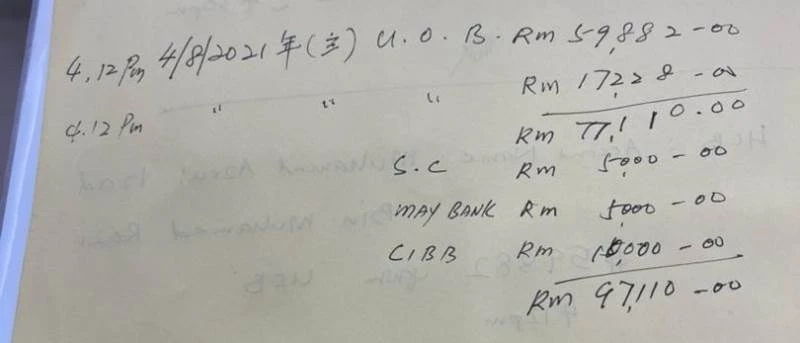 4.12 Pm 4/8/2021 年(主) U.O.B. Rm 59,882-00
4.12 Pm " " " Rm 17,228-00
Rm 77,110.00
S.C Rm 5,000-00
MAY BANK Rm 5,000-00
CIBB Rm 10,000-00
Rm 97,110-00